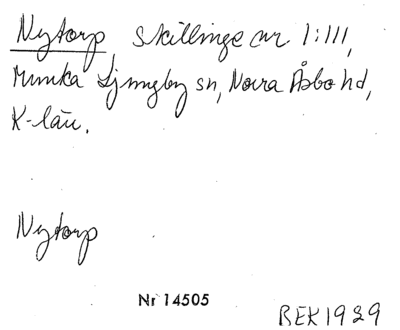 Nytorp, Skillinge nr 1:111,
Munka Ljungby sn, Norra Åsbo hd,
K-län.
Nytorp
Nr 14505
BEK 1929